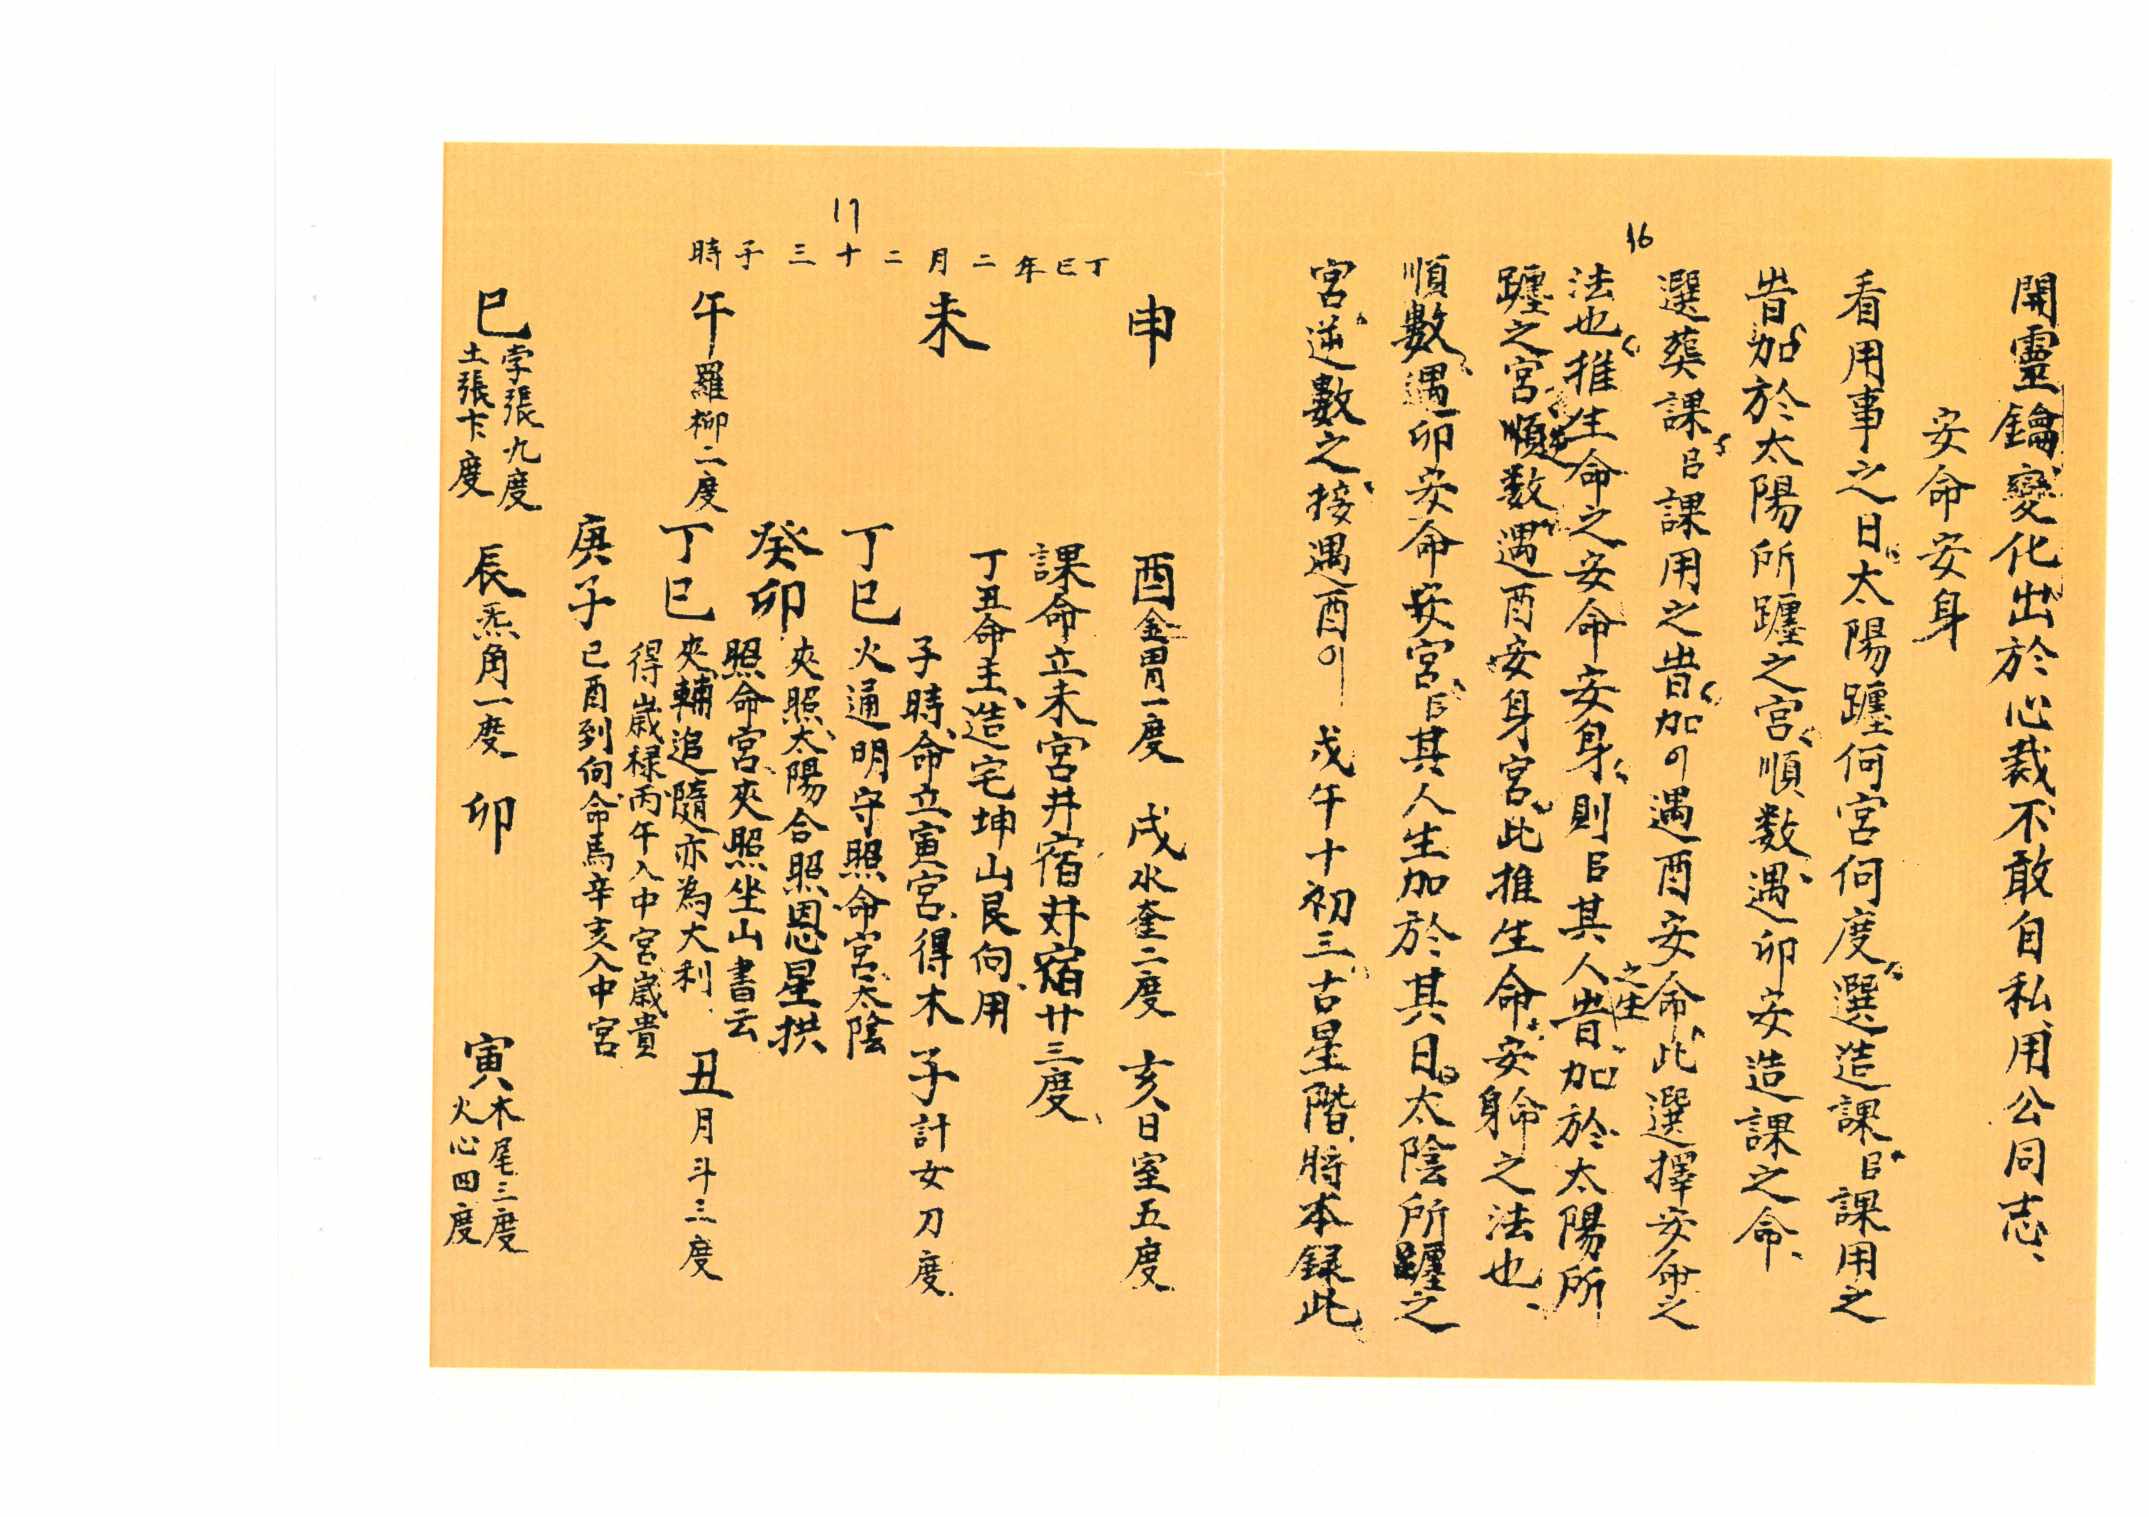 16
開靈鑰變化出於心裁不敢自私用公同志、
安命安身
看用事之日太陽躔何宮何度選造課㠯課用之
旹加於太陽所躔之宮順数遇卯安造課之命、
選葬課㠯課用之旹加의遇酉安命此選擇安命之
法也推生命之安命安身則㠯其人之生旹加於太陽所
躔之宮順数遇酉安身宮此推生命安命之法也、
順數遇卯安命安宮㠯其人生加於其日太陰所躔之
宮逆數之接遇酉이 戊午十初三古星階將本録此
17
丁巳年二月二十三子時
申
酉金胃一度
戌水奎二度
亥日室五度
課命立未宮井宿井宿廿三度、
未
丁丑命主造宅坤山艮向用
子時命立寅宮得木
子計女刀度
丁巳
火通明守照命宮太陰
夾照太陽合照恩星拱
癸卯
照命宮夾照坐山書云
午羅柳二度
丁巳
夾輔追隨亦為大利
丑月斗三度
得歲禄丙午入中宮歲貴
庚子
己酉到向命馬辛亥入中宮
巳孛張九度
土張卞度
辰炁角一度
卯
寅木尾三度
火心四度